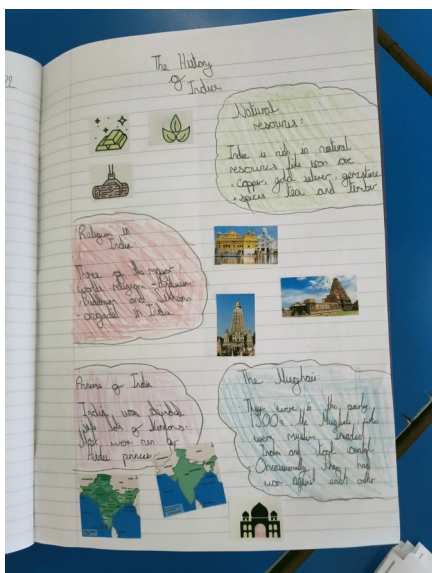 The History
of
India
Natural
resources:
India is rich in natural
resources like iron ore
, copper, gold silver, gemstone
, spices tea and timber
Religion in
India
There are the major
world religions - Hinduism
Buddhism and
- in India
Princes of India
India was divided
into lots of
Most were run by
Hindu princes
The Mughal
They were in the early
1500s the Mughals who
were muslim, invaded
India and took control
Occasionally they had
war against each other